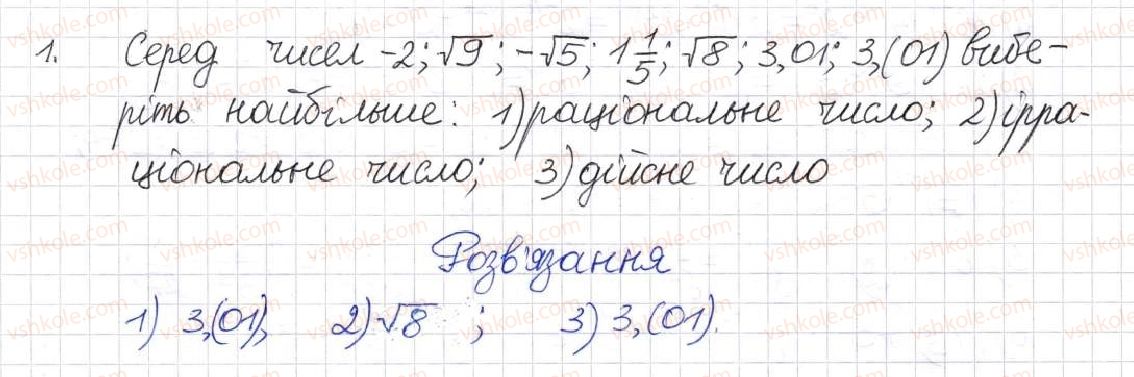 1. Серед чисел -2; √9; -√5; 1 1/5; √8; 3,01; 3,(01) вибе-
ріть найбільше: 1) раціональне число; 2) ірра-
ціональне число; 3) дійсне число
Розв'язання
1) 3,(01); 2) √8 ; 3) 3,(01).